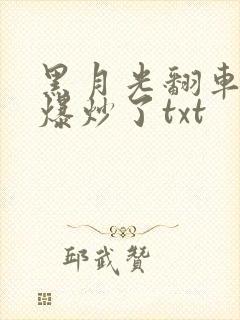 黑月光翻車
爆炒了txt
邱武贊